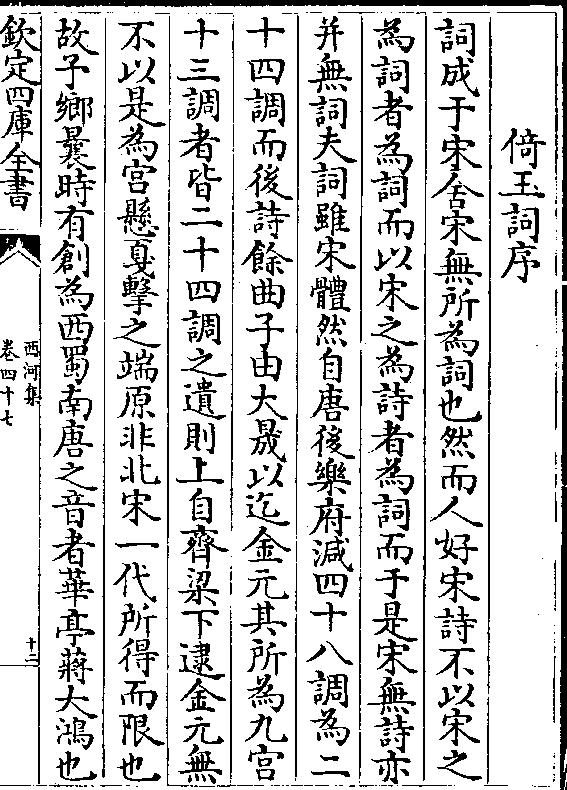 倚玉詞序
詞成于宋舍宋無所為詞也然而人好宋詩不以宋之
為詞者為詞而以宋之為詩者為詞而于是宋無詩亦
并無詞夫詞雖宋體然自唐後樂府減四十八調為二
十四調而後詩餘曲子由大晟以迄金元其所為九宮
十三調者皆二十四調之遺則上自齊梁下逮金元無
不以是為宮懸戛擊之端原非北宋一代所得而限也
故予鄉曩時有創為西蜀南唐之音者華亭蔣大鴻也
欽定四庫全書
西河集
卷四十七
十二